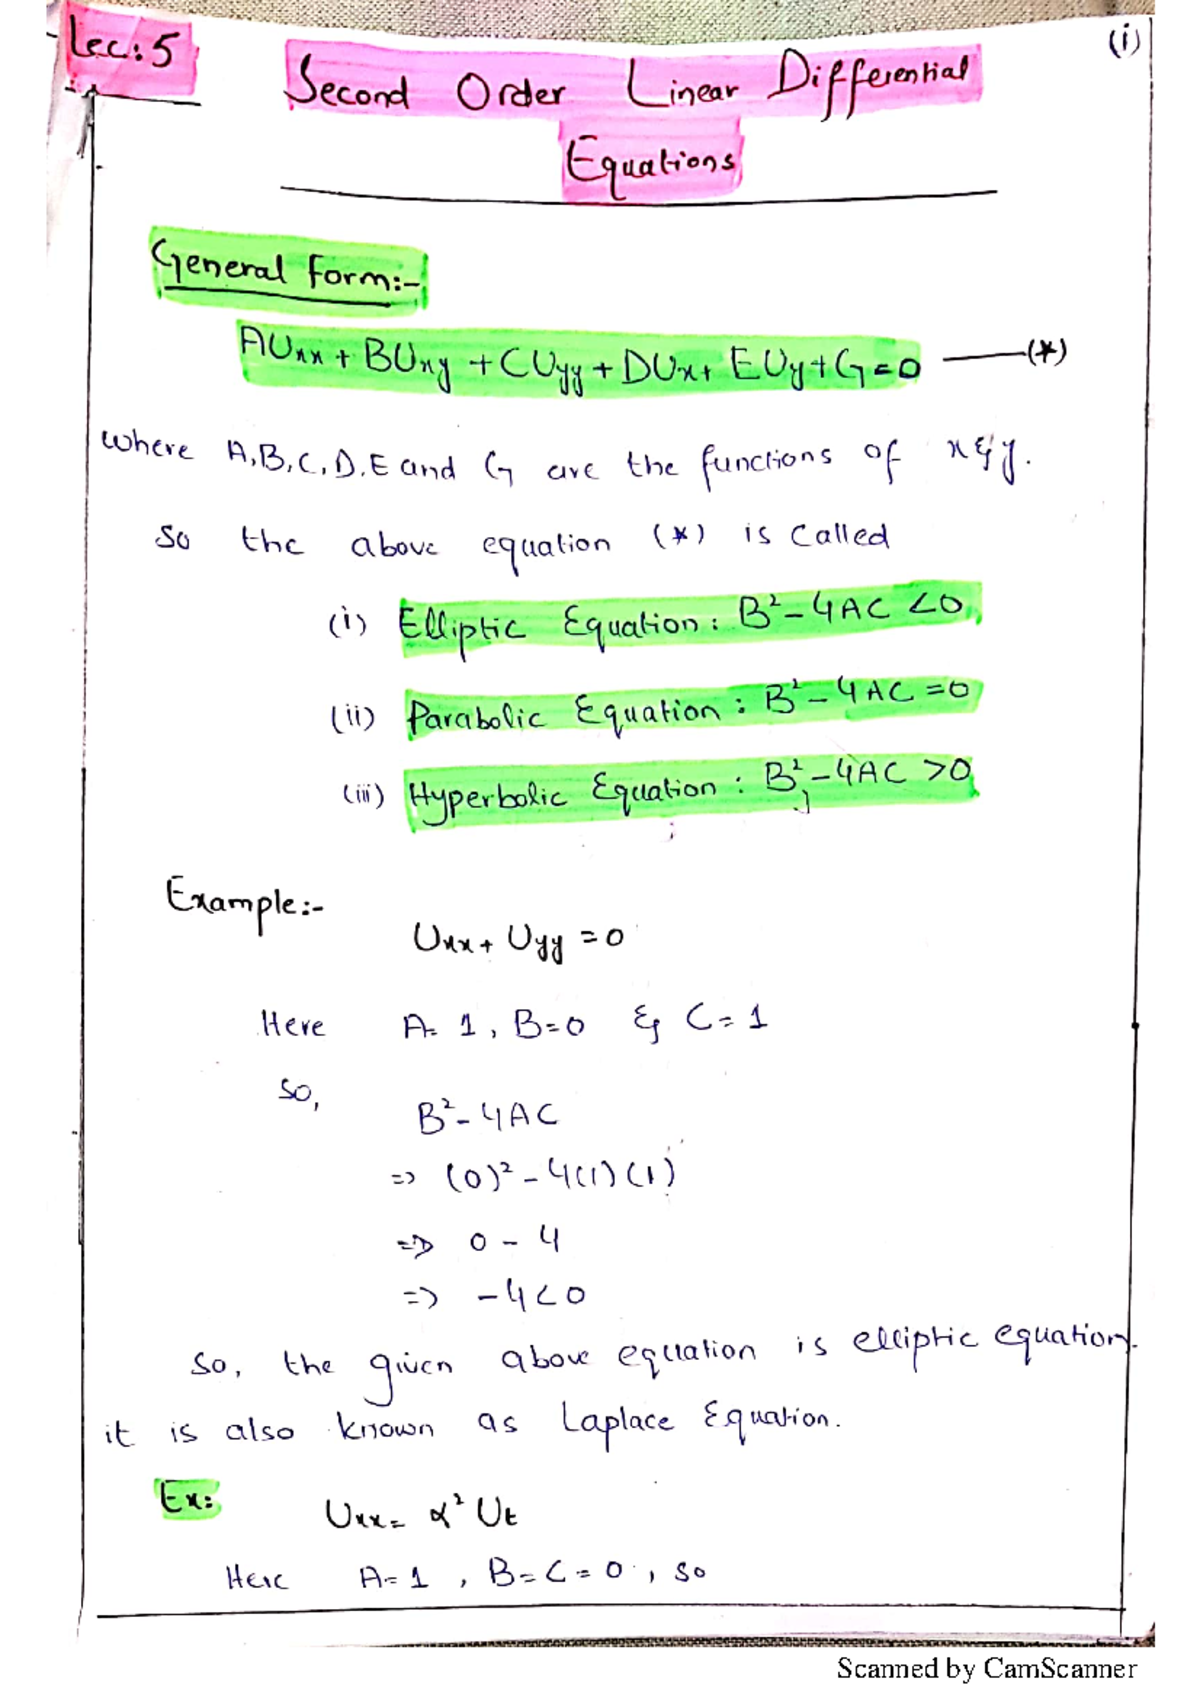 Lec: 5
(i)
Second Order Linear Differential
Equations
General Form:-
AUxx + BUxy + CUyy + DUx + EUy + G = 0 —(*)
where A, B, C, D, E and G are the functions of x & y.
So the above equation (*) is called
(i) Elliptic Equation: B² - 4AC < 0,
(ii) Parabolic Equation: B² - 4AC = 0
(iii) Hyperbolic Equation: B² - 4AC > 0
Example:-
Uxx + Uyy = 0
Here A = 1, B = 0 & C = 1
So,
B² - 4AC
=> (0)² - 4(1)(1)
=> 0 - 4
=> -4 < 0
So, the given above equation is elliptic equation.
it is also known as Laplace Equation.
Ex:
Uxx = α² Ut
Here A = 1, B = C = 0, so
Scanned by CamScanner